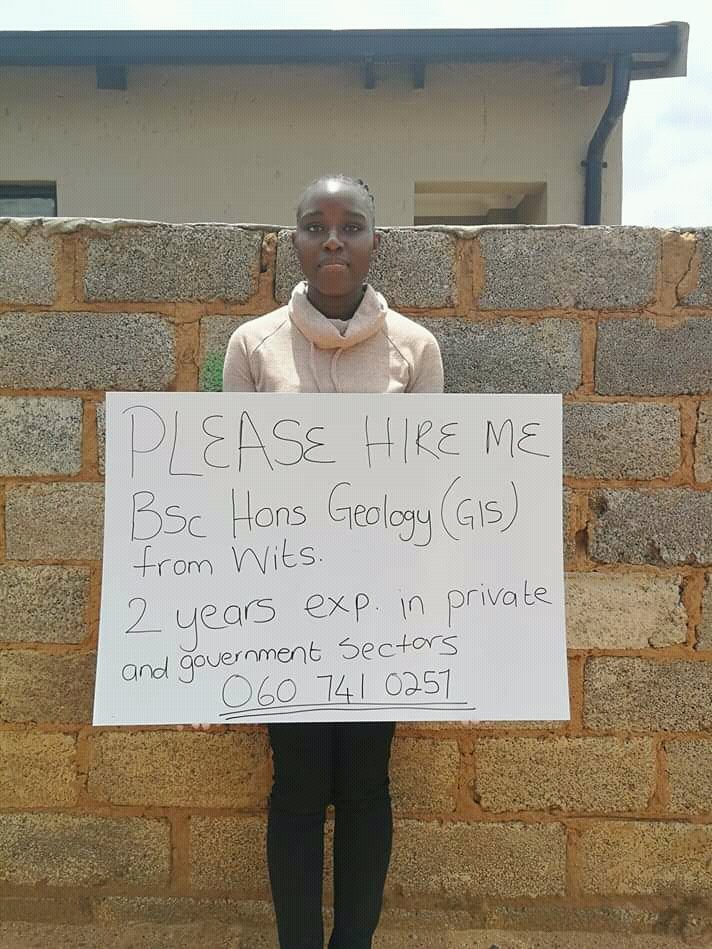 PLEASE HIRE ME
BSc Hons Geology (GIS)
from Wits.
2 years exp. in private
and government sectors
060 741 0257